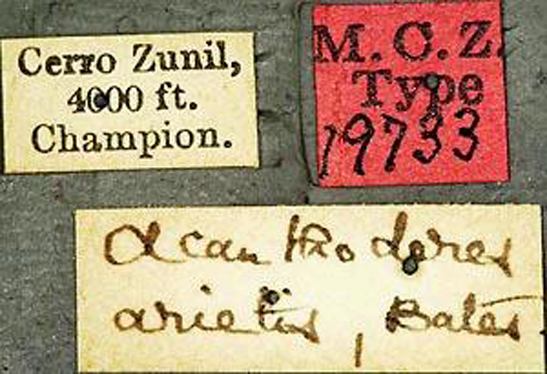 Cerro Zunil,
4000 ft.
Champion.
M.C.Z.
Type
19733
Acanthoderes
arietis, Bates